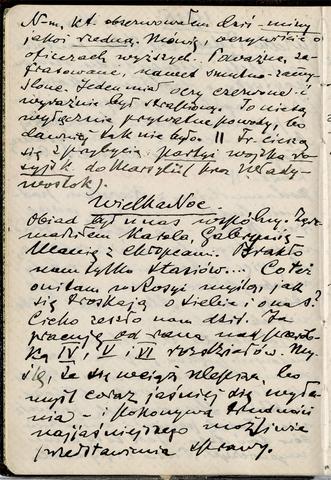 N-m, kt. obserwowałem dziś - miny
jakoś rzedną. Mówię, oczywiście o
oficerach wyższych. Poważne, za-
frasowane, nawet smutno-zamy-
ślone. Jeden miał oczy czerwone i
wyraźnie był strapiony. To nie są
wyłącznie prywatne powody, bo
dawniej tak nie było. || Fr. cieszą
się z przybycia partyi wojska ro-
syjsk. do Marsylii (przez Włady-
wostok).
Wielkanoc.
Obiad był u nas wspólny. Zgro-
madziłem Karola, Gabrynię
Manię z chłopcami. Brakło
nam tylko Stasiów... Co też
oni tam w Rosyi myślą, jak
się troskają o siebie i o nas?
Cicho zeszło nam dziś. Ja
pracuję od rana nad przerób-
ką IV, V i VI rozdziałów. My-
ślę, że się wciąż ulepsza, bo
myśl coraz jaśniej się wyła-
nia - i pokonywa trudności
najjaśniejszego możliwie
przedstawienia sprawy.